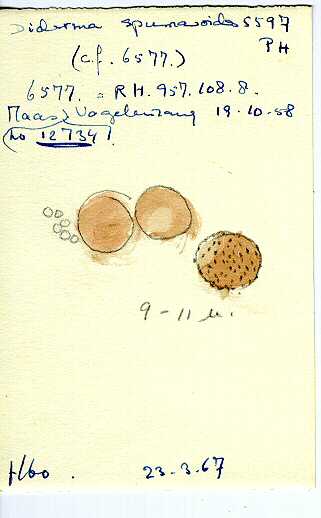 Diderma spumarioides 5597
PH
(c.f. 6577.)
6577. = R.H. 957.108.8.
Maas) Vogelenzang 19.10.58
(no 127341.
9-11 µ.
H/bo. 23.3.67